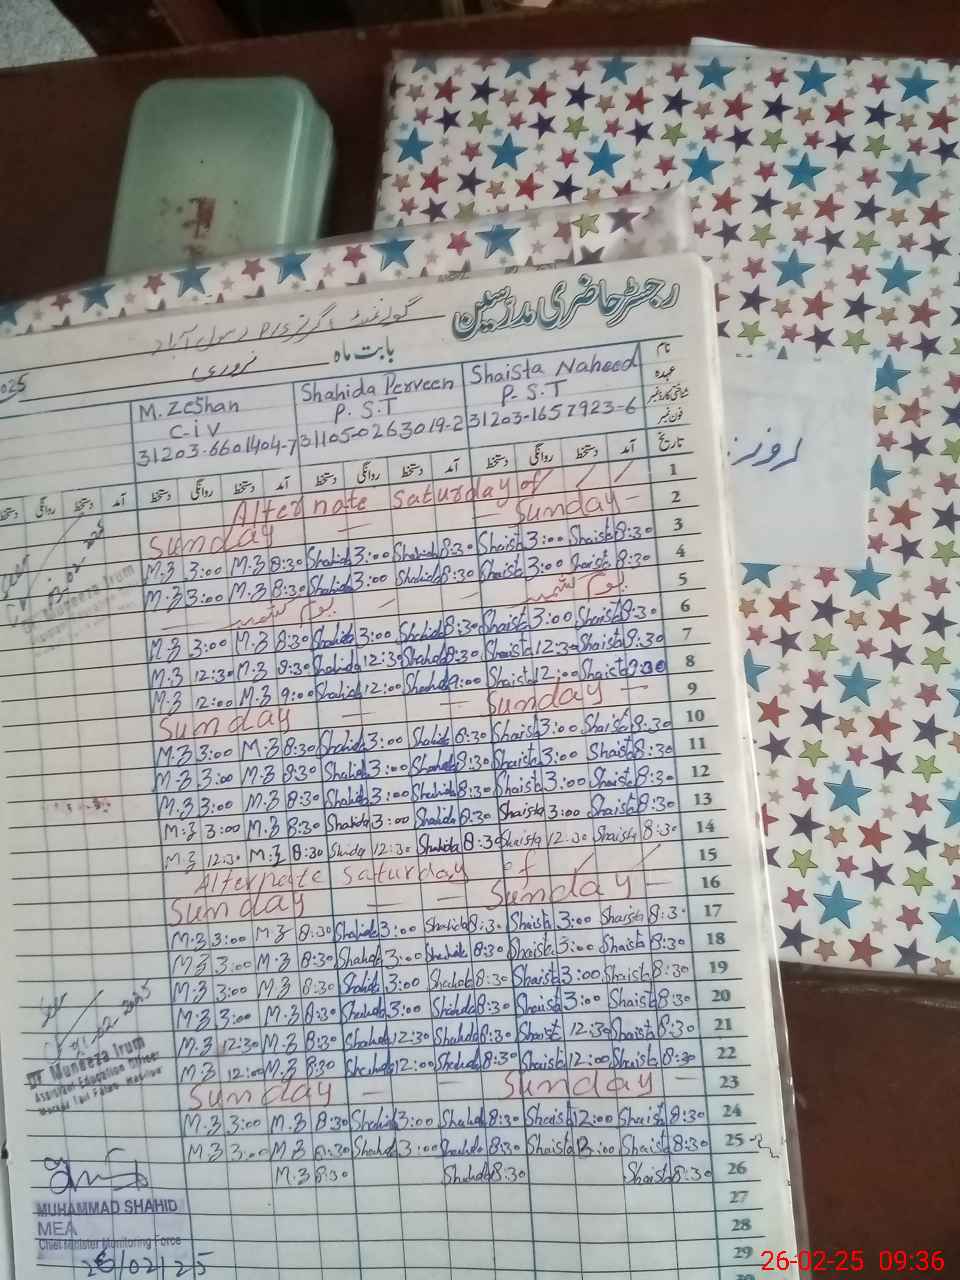 رجسٹر حاضری مدرسین
بابت ماہ فروری
نام M. Zeshan Shahida Perveen Shaista Naheed
عہدہ C-iV P.S.T P.S.T
شناختی کارڈ نمبر 31203-6601404-7 31105-0263019-2 31203-1657923-6
فون نمبر
تاریخ آمد دستخط روانگی دستخط آمد دستخط روانگی دستخط آمد دستخط روانگی دستخط آمد دستخط روانگی دستخط
Alternate Saturday of 1
Sunday — — Sunday — 2
M.Z 3:00 M.Z 8:30 Shahida 3:00 Shahida 8:30 Shaista 3:00 Shaista 8:30 3
M.Z 3:00 M.Z 8:30 Shahida 3:00 Shahida 8:30 Shaista 3:00 Shaista 8:30 4
یوم کشمیر یوم کشمیر 5
M.Z 3:00 M.Z 8:30 Shahida 3:00 Shahida 8:30 Shaista 3:00 Shaista 8:30 6
M.Z 12:30 M.Z 8:30 Shahida 12:30 Shahida 8:30 Shaista 12:30 Shaista 8:30 7
M.Z 12:00 M.Z 9:00 Shahida 12:00 Shahida 9:00 Shaista 12:00 Shaista 9:00 8
Sunday — — Sunday — 9
M.Z 3:00 M.Z 8:30 Shahida 3:00 Shahida 8:30 Shaista 3:00 Shaista 8:30 10
M.Z 3:00 M.Z 8:30 Shahida 3:00 Shahida 8:30 Shaista 3:00 Shaista 8:30 11
M.Z 3:00 M.Z 8:30 Shahida 3:00 Shahida 8:30 Shaista 3:00 Shaista 8:30 12
M.Z 3:00 M.Z 8:30 Shahida 3:00 Shahida 8:30 Shaista 3:00 Shaista 8:30 13
M.Z 12:30 M.Z 8:30 Shahida 12:30 Shahida 8:30 Shaista 12:30 Shaista 8:30 14
Alternate Saturday of 15
Sunday — — Sunday — 16
M.Z 3:00 M.Z 8:30 Shahida 3:00 Shahida 8:30 Shaista 3:00 Shaista 8:30 17
M.Z 3:00 M.Z 8:30 Shahida 3:00 Shahida 8:30 Shaista 3:00 Shaista 8:30 18
M.Z 3:00 M.Z 8:30 Shahida 3:00 Shahida 8:30 Shaista 3:00 Shaista 8:30 19
M.Z 3:00 M.Z 8:30 Shahida 3:00 Shahida 8:30 Shaista 3:00 Shaista 8:30 20
M.Z 12:30 M.Z 8:30 Shahida 12:30 Shahida 8:30 Shaista 12:30 Shaista 8:30 21
M.Z 12:00 M.Z 8:30 Shahida 12:00 Shahida 8:30 Shaista 12:00 Shaista 8:30 22
Sunday — — Sunday — 23
M.Z 3:00 M.Z 8:30 Shahida 3:00 Shahida 8:30 Shaista 12:00 Shaista 8:30 24
M.Z 3:00 M.Z 8:30 Shahida 3:00 Shahida 8:30 Shaista Shaista 8:30 25
M.Z 8:30 Shahida 8:30 Shaista 8:30 26
27
28
29
Dr Muneeza Irum
Assistant Education Officer
MUHAMMAD SHAHID
MEA
Chief Minister Monitoring Force
26/02/25
26-02-25 09:36